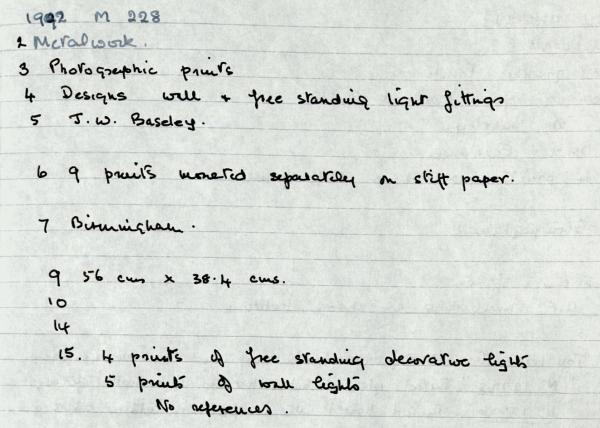 1992 M 228
2 Metalwork.
3 Photographic prints
4 Designs wall + free standing light fittings
5 J.W. Baseley.
6 9 prints mounted separately on stiff paper.
7 Birmingham.
9 56 cms x 38.4 cms.
10
14
15. 4 prints of free standing decorative lights
5 prints of wall lights
No references.